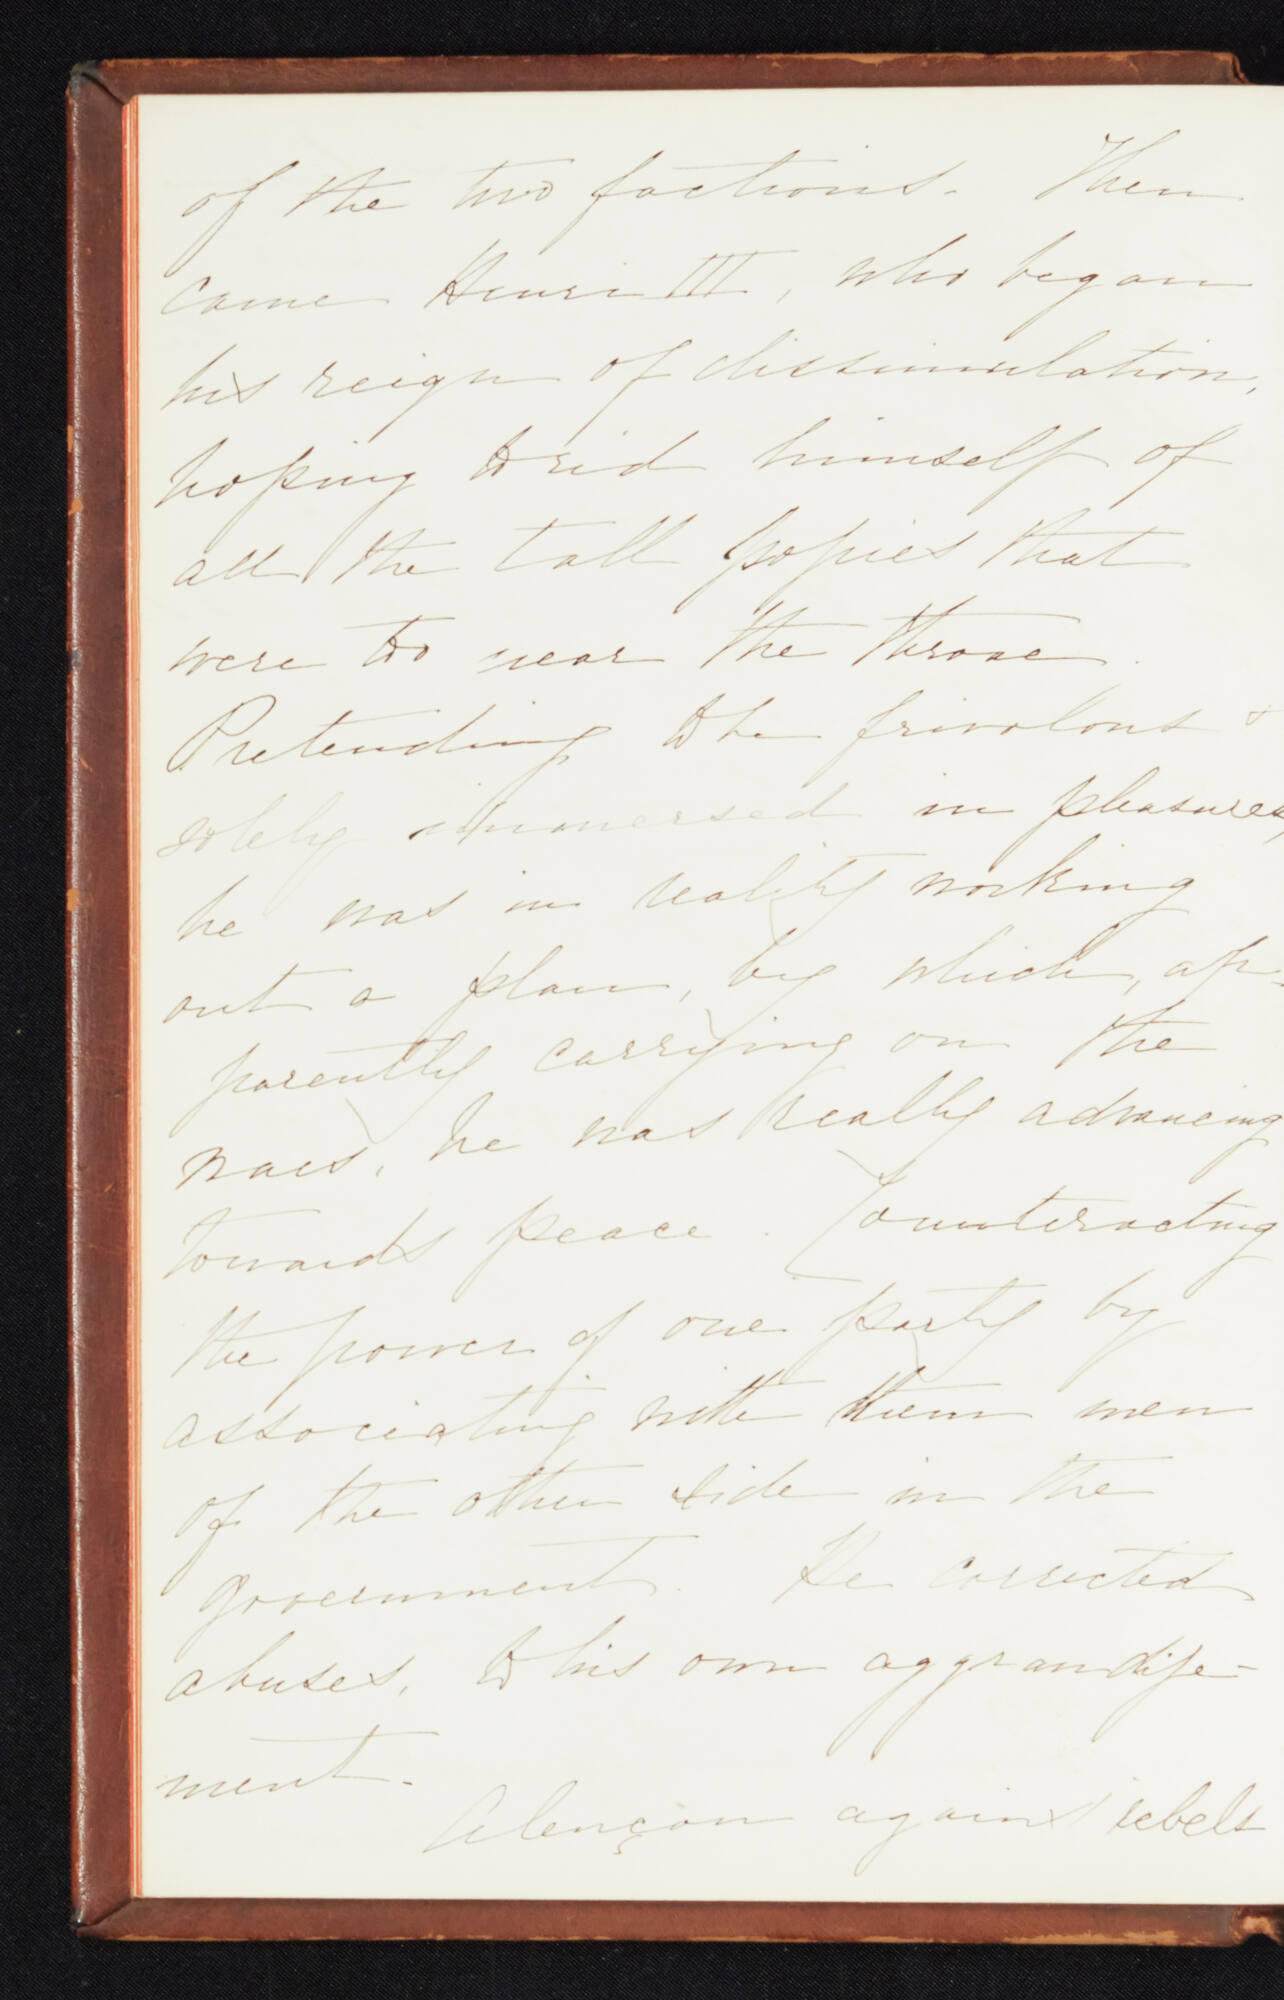 of the two factions. Then
came Henri III, who began
his reign of dissimulation,
hoping to rid himself of
all the tall popies that
were too near the throne.
Pretending to be frivolous &
solely immersed in pleasures,
he was in reality working
out a plan, by which, ap-
parently carrying on the
wars, he was really advancing
towards peace. Counteracting
the power of one party by
associating with them men
of the other side in the
government. He corrected
abuses, to his own aggrandize-
ment.
Alençon again rebels